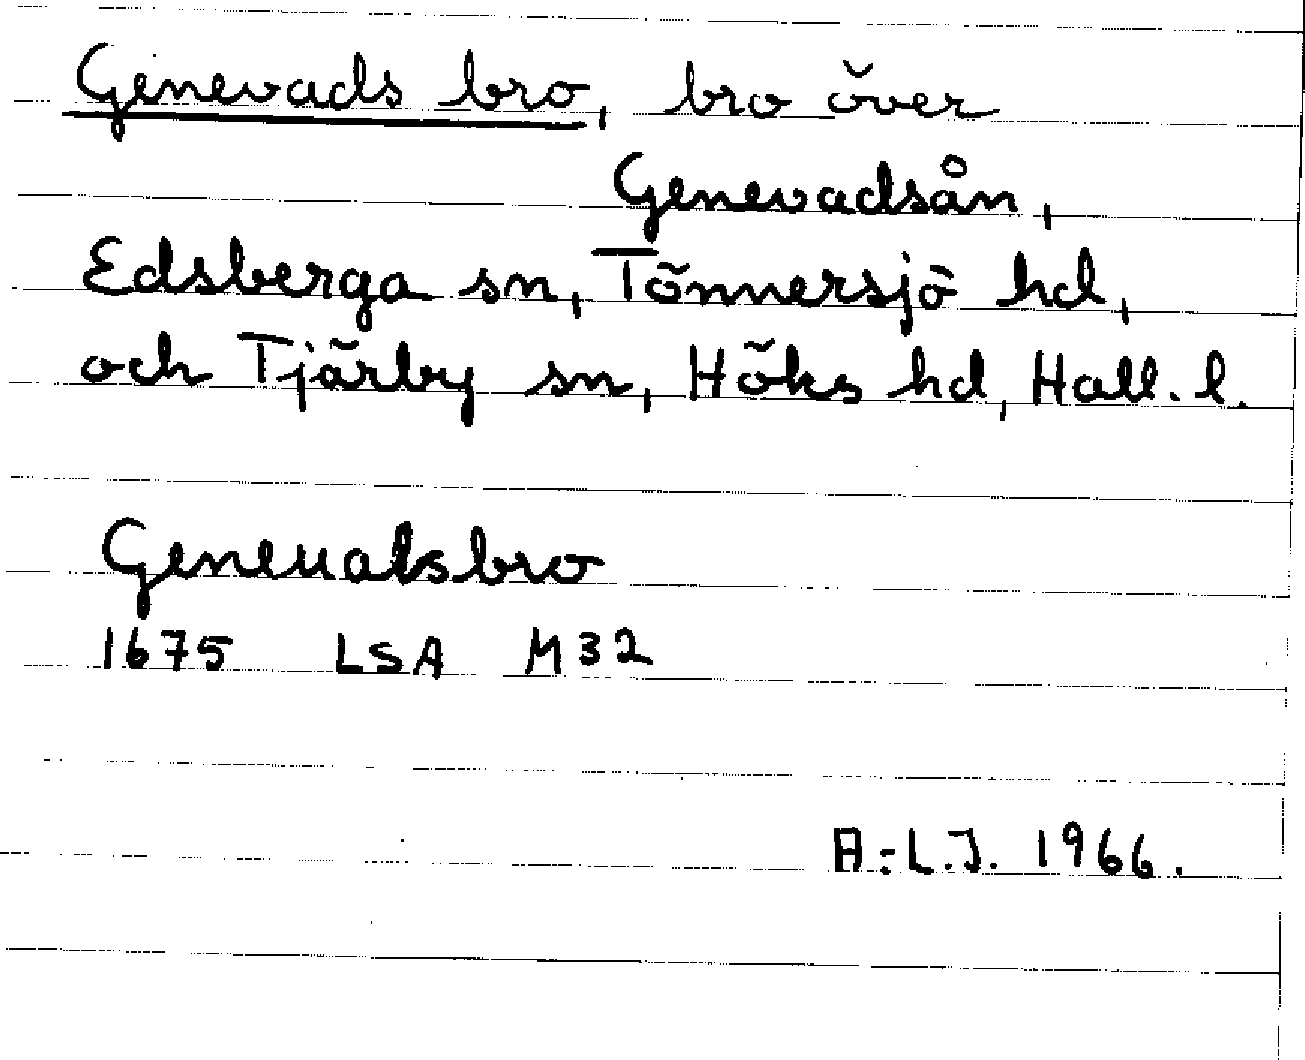 Genevads bro, bro över
Genevadsån,
Edsberga sn, Tönnersjö hd,
och Tjärby sn, Höks hd, Hall. l.
Geneuatsbro
1675 LSA M32
A.-L.J. 1966.